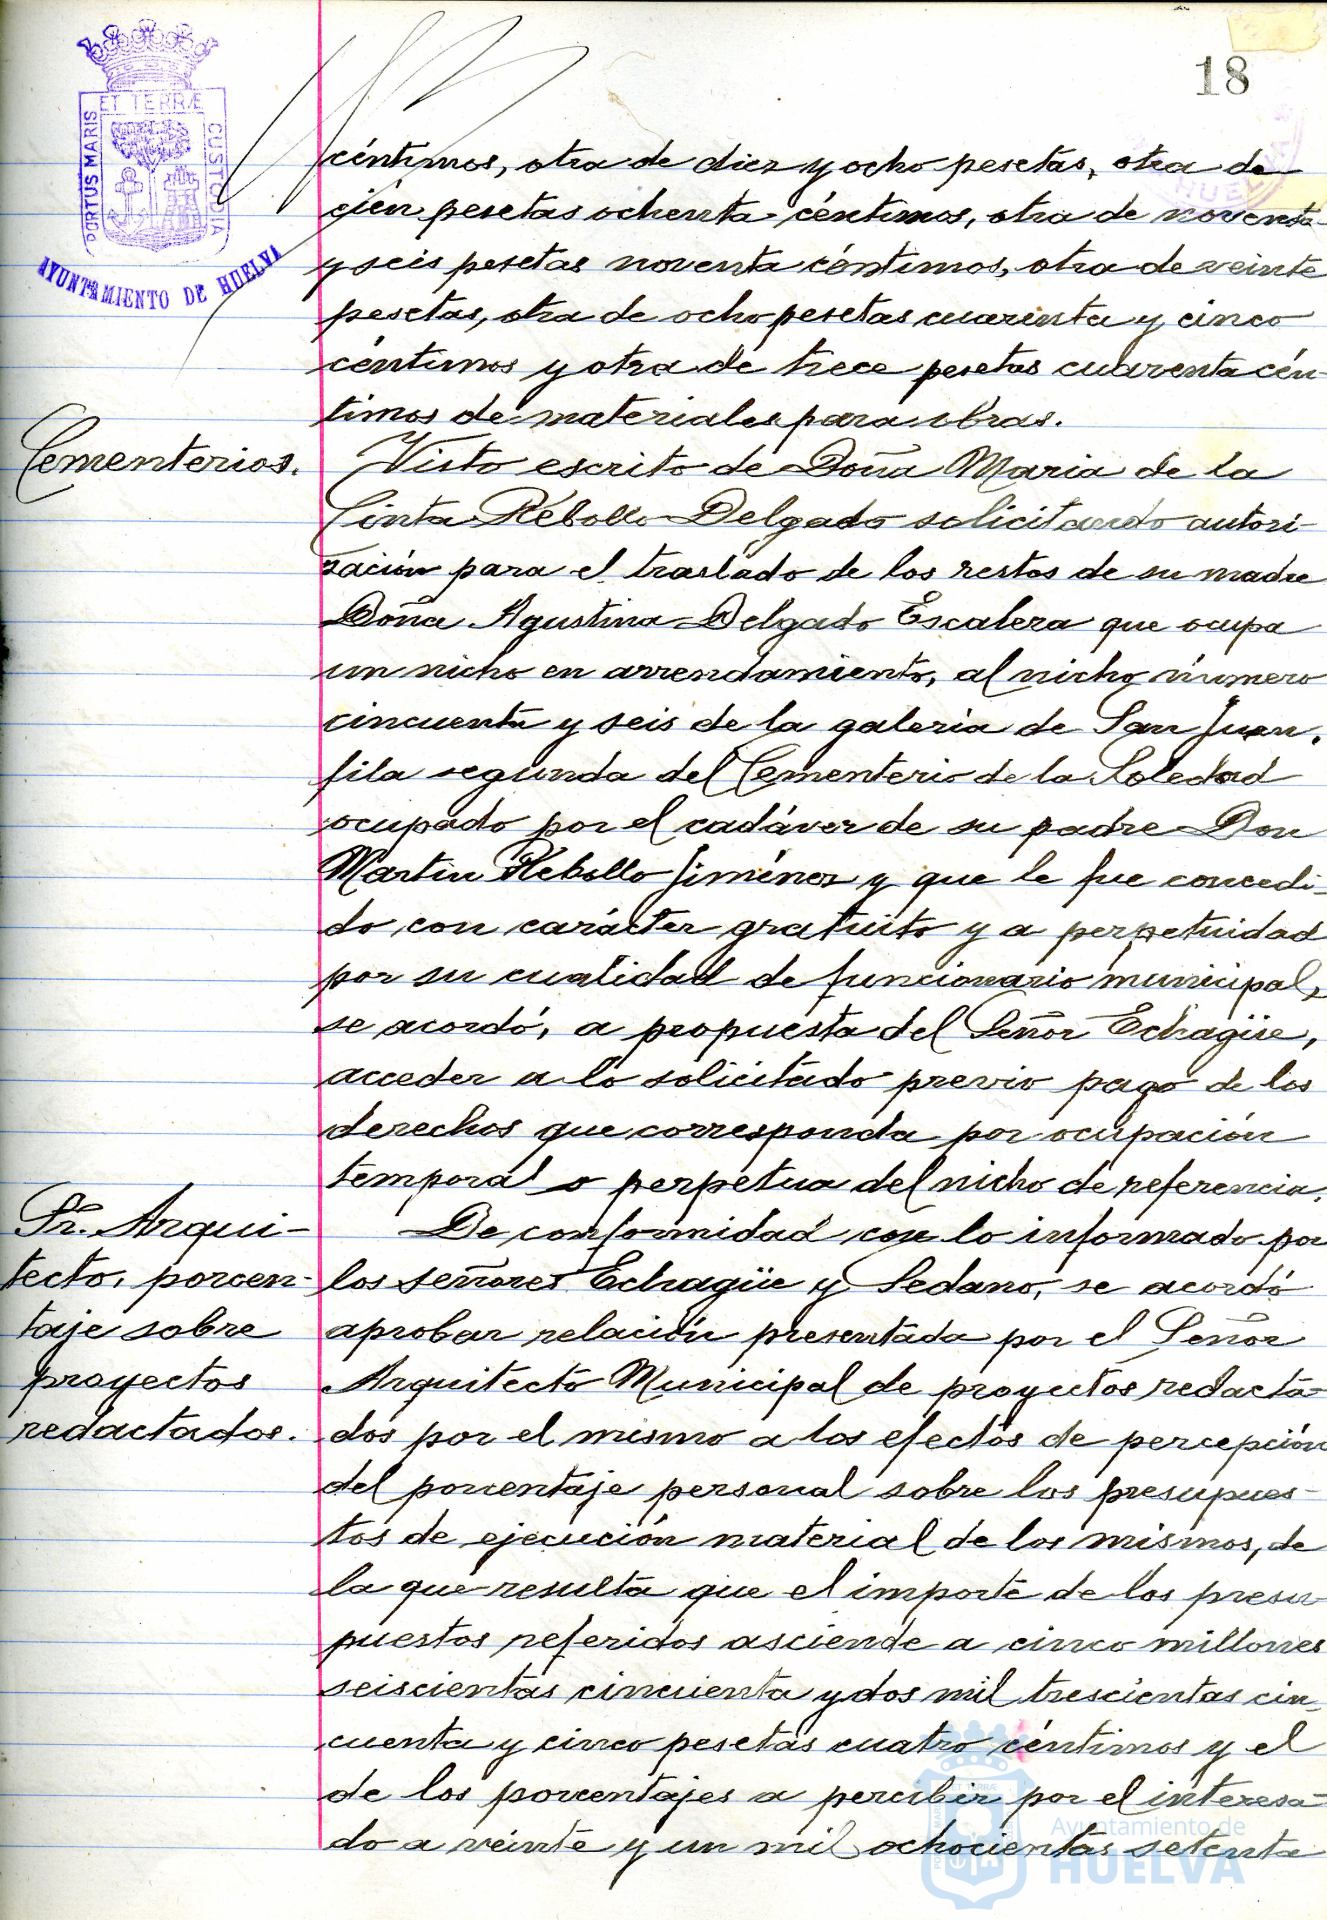 18
PORTUS MARIS
ET TERRÆ
CUSTODIA
AYUNTAMIENTO DE HUELVA
HUELVA
céntimos, otra de diez y ocho pesetas, otra de
cien pesetas ochenta céntimos, otra de noventa
y seis pesetas noventa céntimos, otra de veinte
pesetas, otra de ocho pesetas cuarenta y cinco
céntimos y otra de trece pesetas cuarenta cén-
timos de materiales para obras.
Cementerios.
Visto escrito de Doña Maria de la
Cinta Rebollo Delgado solicitando autori-
zación para el traslado de los restos de su madre
Doña Agustina Delgado Escalera que ocupa
un nicho en arrendamiento, al nicho número
cincuenta y seis de la galeria de San Juan,
fila segunda del Cementerio de la Soledad
ocupado por el cadáver de su padre Don
Martin Rebollo Jiménez y que le fue concedi-
do con carácter gratuito y a perpetuidad
por su cualidad de funcionario municipal,
se acordó, a propuesta del Señor Echagüe,
acceder a lo solicitado previo pago de los
derechos que corresponda por ocupación
temporal o perpetua del nicho de referencia.
Sr. Arqui-
tecto, porcen-
taje sobre
proyectos
redactados.
De conformidad con lo informado por
los señores Echagüe y Sedano, se acordó
aprobar relación presentada por el Señor
Arquitecto Municipal de proyectos redacta-
dos por el mismo a los efectos de percepción
del porcentaje personal sobre los presupues-
tos de ejecución material de los mismos, de
la que resulta que el importe de los presu-
puestos referidos asciende a cinco millones
seiscientas cincuenta y dos mil trescientas cin-
cuenta y cinco pesetas cuatro céntimos y el
de los porcentajes a percibir por el interesa-
do a veinte y un mil ochocientas setenta
Ayuntamiento de
HUELVA